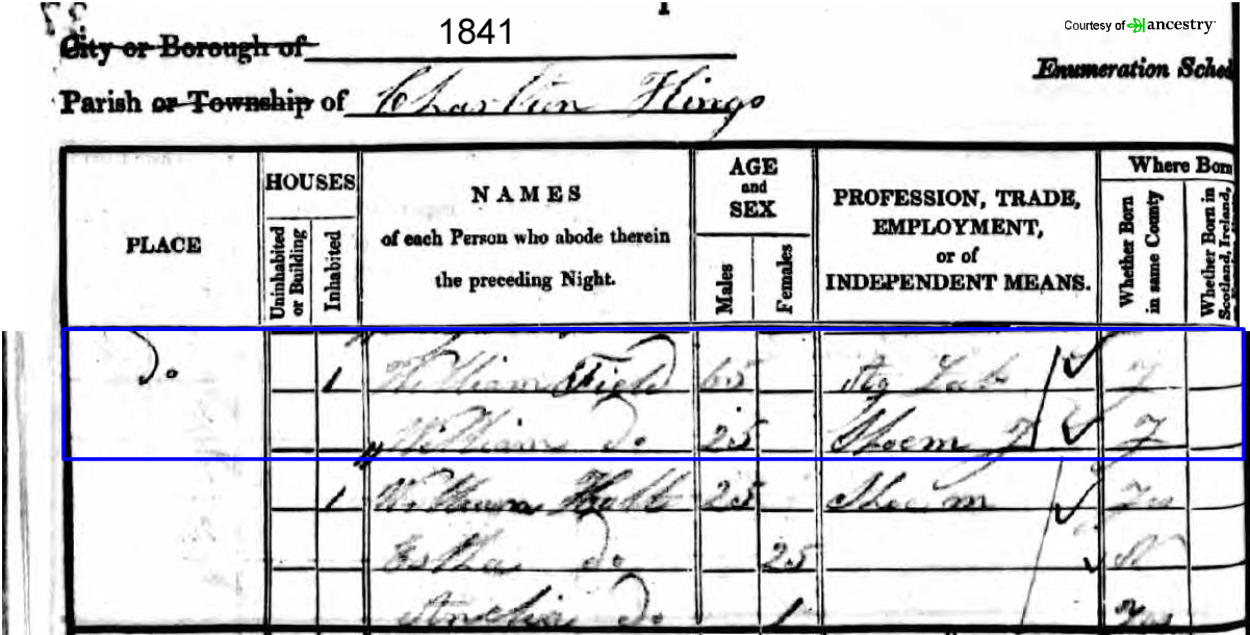 1841
Courtesy of ancestry
City or Borough of
Enumeration Sched
Parish or Township of Charlton Kings
PLACE
HOUSES
Uninhabited or Building
Inhabited
NAMES
of each Person who abode therein
the preceding Night.
AGE
and
SEX
Males
Females
PROFESSION, TRADE,
EMPLOYMENT,
or of
INDEPENDENT MEANS.
Where Born
Whether Born
in same County
Whether Born in
Scotland, Ireland,
Do 1 William Field 65 Ag Lab Y
William Do 25 Shoem J Y
1 William Holt 25 Shoem Yes
Esther Do 25 N
Do 1 Yes